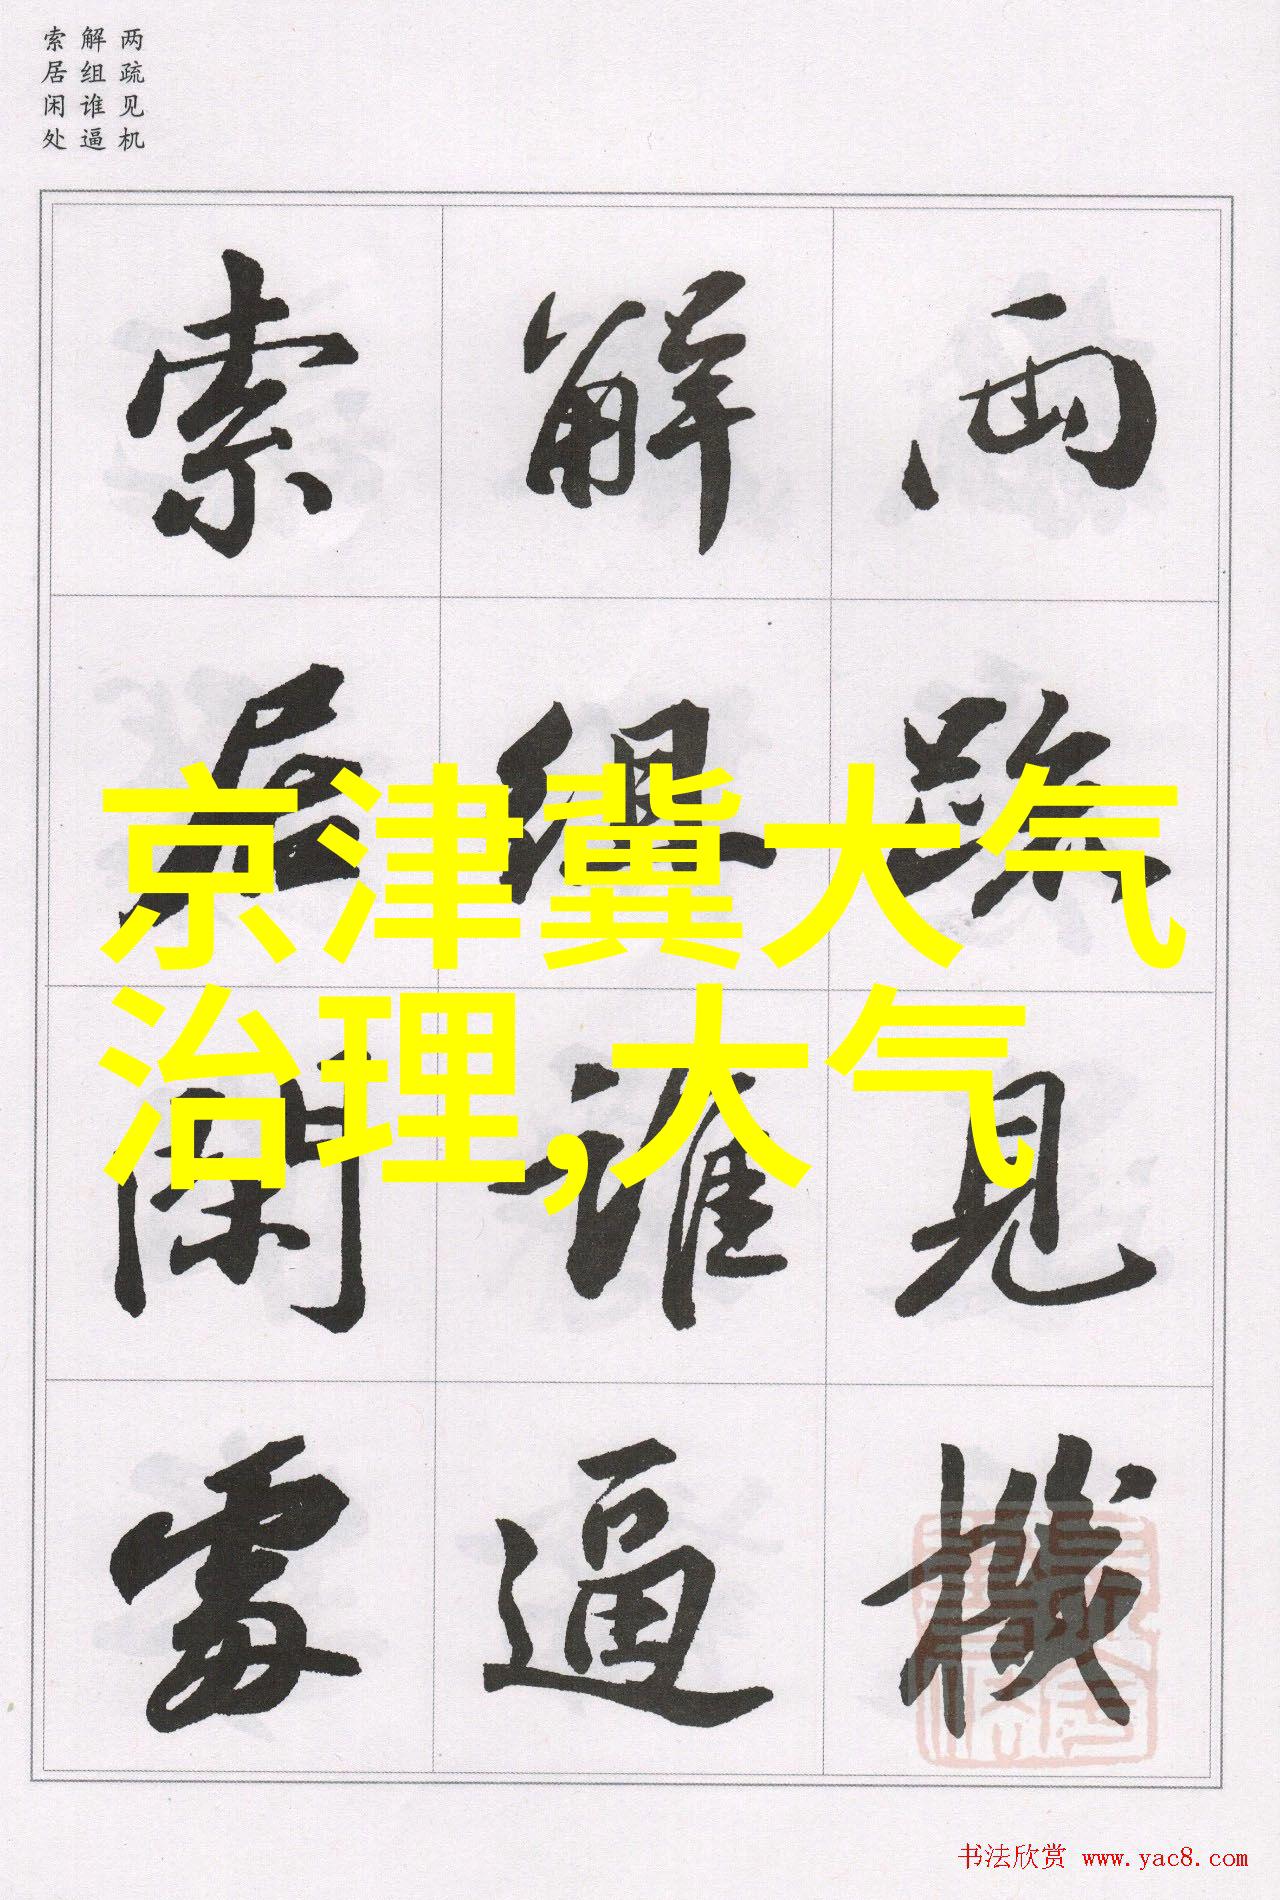 两疏见机
解组谁逼
索居闲处
兩疏見機
解組誰逼
索居閑處
京津冀大气
治理,大气
书法欣赏 www.yac8.com